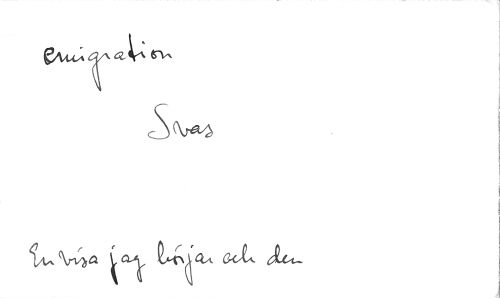 emigration
Svas
En visa jag börjar och den